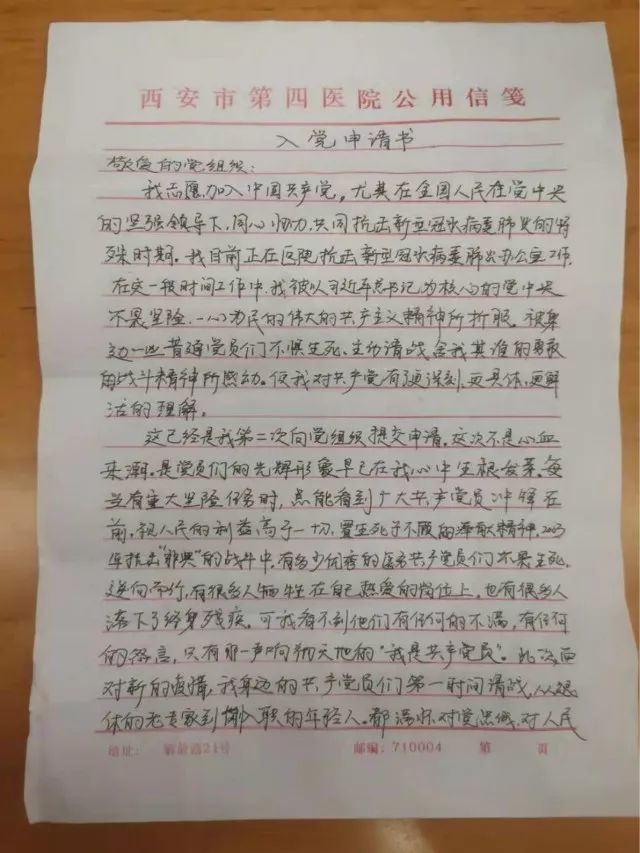 西安市第四医院公用信笺
入党申请书
敬爱的党组织：
我志愿加入中国共产党，尤其在全国人民在党中央
的坚强领导下，同心协力，共同抗击新型冠状病毒肺炎的特
殊时期。我目前正在医院抗击新型冠状病毒肺炎办公室工作，
在这一段时间工作中，我被以习近平总书记为核心的党中央
不畏艰险，一心为民的伟大的共产主义精神所折服。被身
边一些普通党员们不惧生死、主动请战，舍我其谁的勇敢
的战斗精神所感动。使我对共产党有了更深刻、更具体、更鲜
活的理解。
这已经是我第二次向党组织提交申请，这次不是心血
来潮。是党员们的光辉形象早已在我心中生根发芽。每
当有重大坚险任务时，总能看到广大共产党员冲锋在
前，视人民的利益高于一切，置生死于不顾的奉献精神，2003
年抗击“非典”的战斗中，有多少优秀的医务共产党员们不畏生死，
逆向而行，有很多人牺牲在自己热爱的岗位上，也有很多人
落下了终身残疾。可我看不到他们有任何的不满，有任何
的怨言，只有那一声响彻天地的“我是共产党员”。此次面
对新的疫情，我身边的共产党员们第一时间请战，从退
休的老专家到刚入职的年轻人。都满怀对党忠诚，对人民
地址： 解放路21号 邮编：710004 第 页